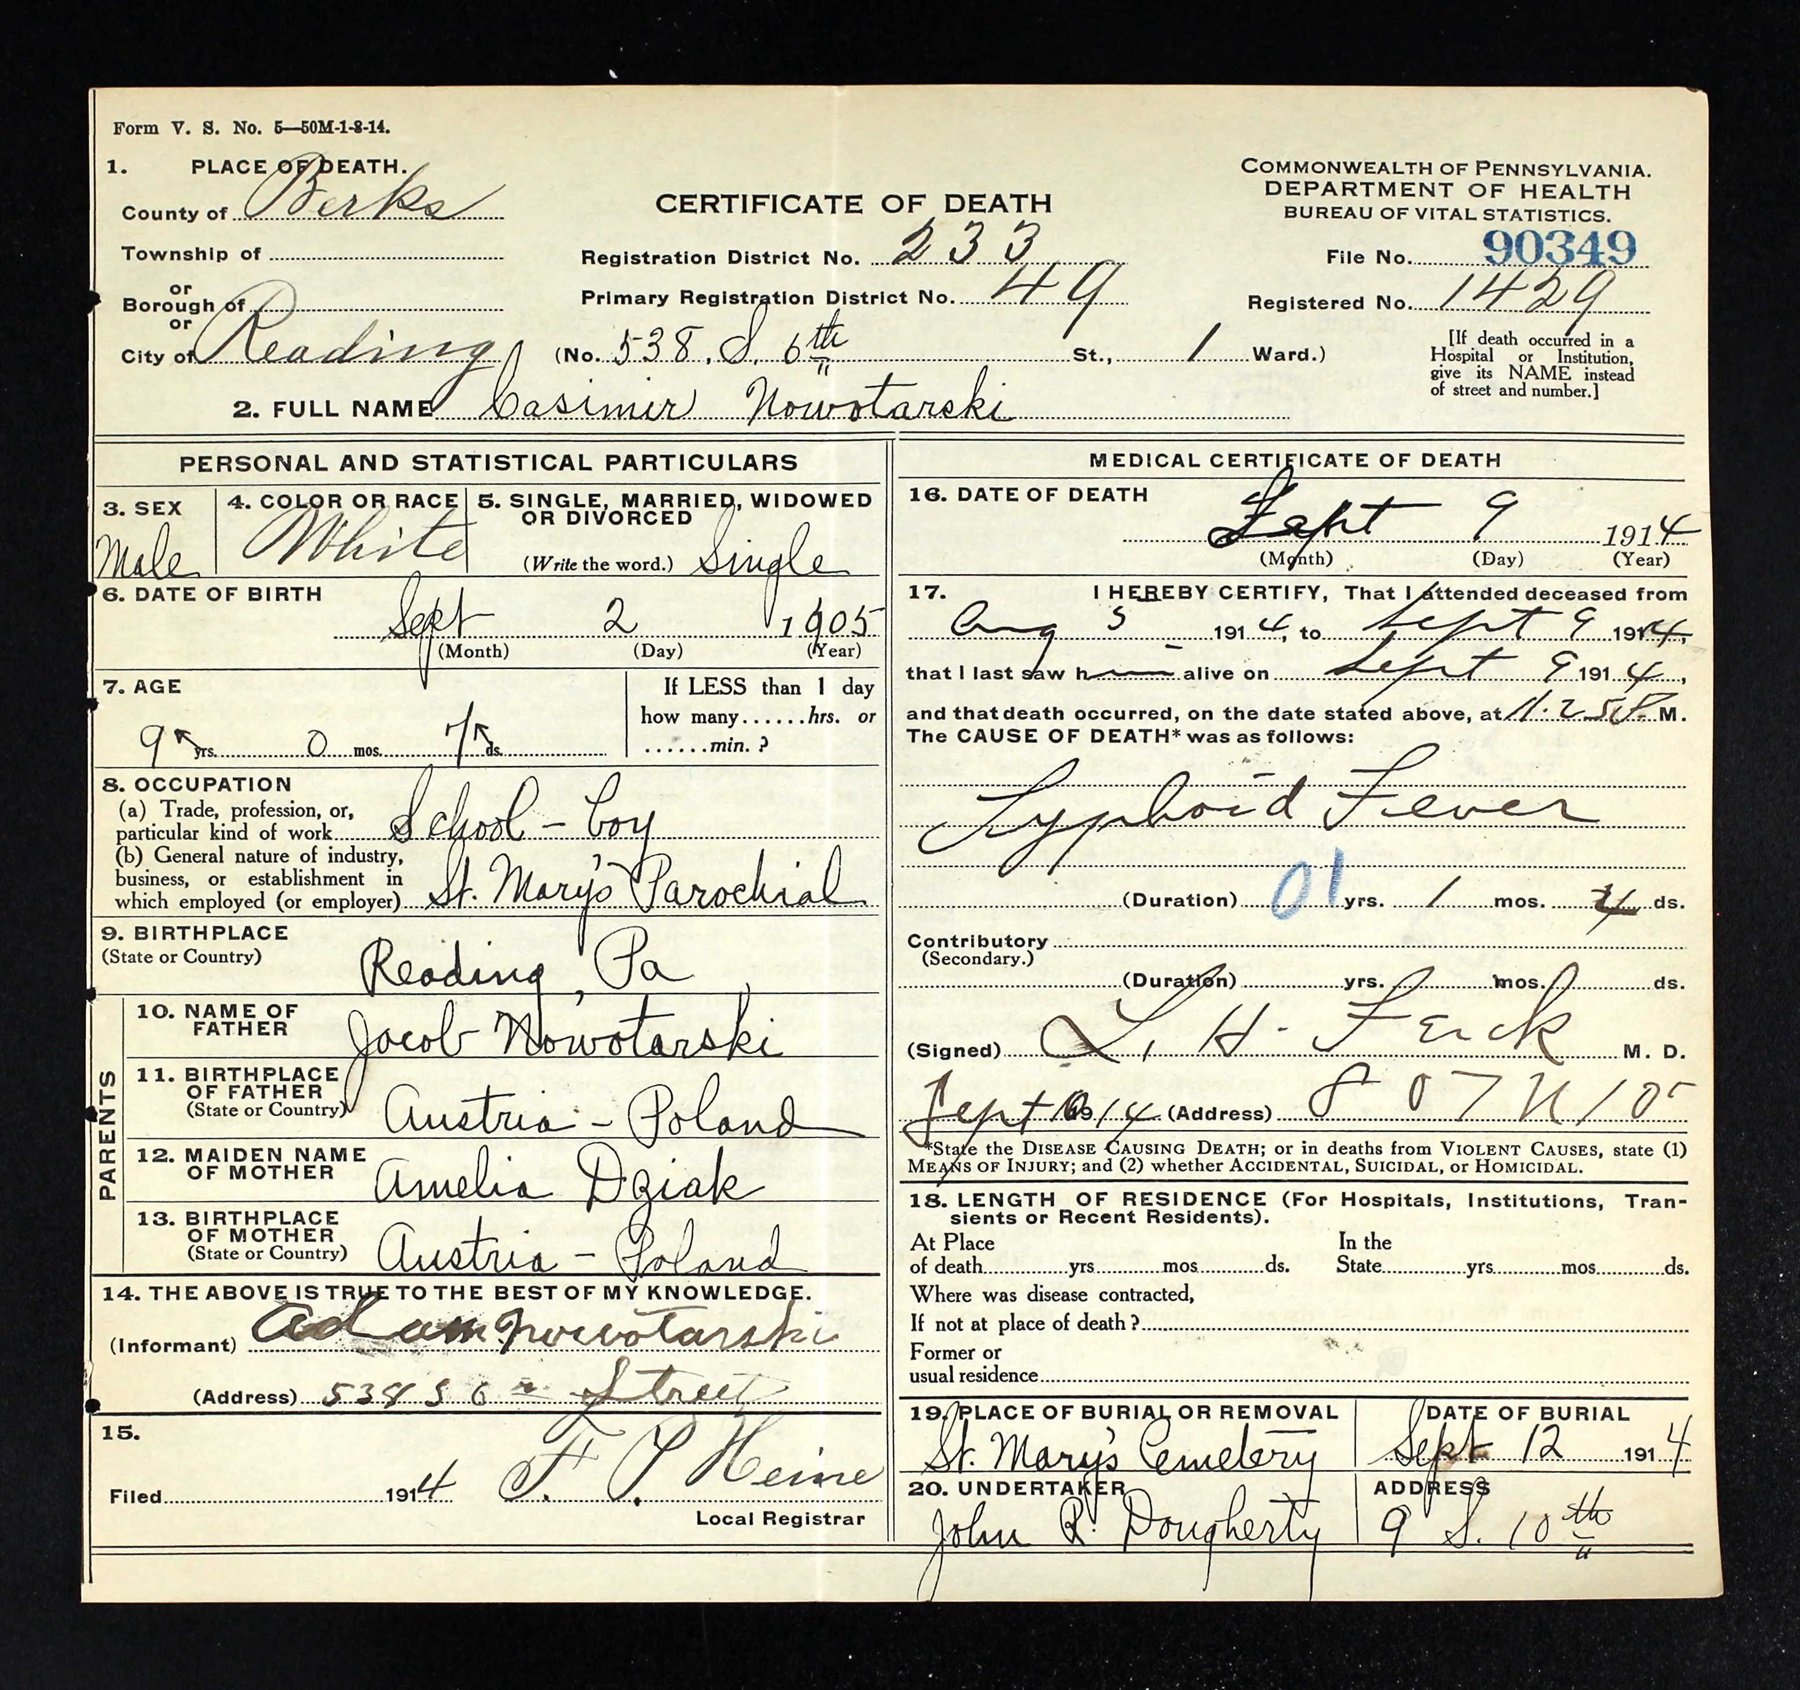 Form V. S. No. 5—50M-1-8-14.
1. PLACE OF DEATH.
County of Berks
Township of
or
Borough of
or
City of Reading
CERTIFICATE OF DEATH
Registration District No. 233
Primary Registration District No. 49
(No. 538. S. 6th St., 1 Ward.)
COMMONWEALTH OF PENNSYLVANIA.
DEPARTMENT OF HEALTH
BUREAU OF VITAL STATISTICS.
File No. 90349
Registered No. 1429
[If death occurred in a
Hospital or Institution,
give its NAME instead
of street and number.]
2. FULL NAME Casimir Nowotarski
PERSONAL AND STATISTICAL PARTICULARS
3. SEX
Male
4. COLOR OR RACE
White
5. SINGLE, MARRIED, WIDOWED
OR DIVORCED
(Write the word.) Single
6. DATE OF BIRTH
Sept 2 1905
(Month) (Day) (Year)
7. AGE
9 yrs. 0 mos. 7 ds.
If LESS than 1 day
how many......hrs. or
......min. ?
8. OCCUPATION
(a) Trade, profession, or,
particular kind of work School-boy
(b) General nature of industry,
business, or establishment in
which employed (or employer) St. Mary's Parochial
9. BIRTHPLACE
(State or Country)
Reading, Pa
PARENTS
10. NAME OF
FATHER
Jacob Nowotarski
11. BIRTHPLACE
OF FATHER
(State or Country)
Austria - Poland
12. MAIDEN NAME
OF MOTHER
Amelia Dziak
13. BIRTHPLACE
OF MOTHER
(State or Country)
Austria - Poland
14. THE ABOVE IS TRUE TO THE BEST OF MY KNOWLEDGE.
(Informant) Adam Nowotarski
(Address) 538 S 6th Street
15.
Filed 1914 F. P. Heine
Local Registrar
MEDICAL CERTIFICATE OF DEATH
16. DATE OF DEATH
Sept 9 1914
(Month) (Day) (Year)
17. I HEREBY CERTIFY, That I attended deceased from
Aug 5 1914, to Sept 9 1914,
that I last saw him alive on Sept 9 1914,
and that death occurred, on the date stated above, at 11.25 P. M.
The CAUSE OF DEATH* was as follows:
Typhoid Fever
(Duration) 01 yrs. 1 mos. 4 ds.
Contributory
(Secondary.)
(Duration) yrs. mos. ds.
(Signed) L. H. M. D.
Sept 1914 (Address) 807 N 10
*State the DISEASE CAUSING DEATH; or in deaths from VIOLENT CAUSES, state (1)
MEANS OF INJURY; and (2) whether ACCIDENTAL, SUICIDAL, or HOMICIDAL.
18. LENGTH OF RESIDENCE (For Hospitals, Institutions, Tran-
sients or Recent Residents).
At Place In the
of death yrs mos ds. State yrs mos ds.
Where was disease contracted,
If not at place of death ?
Former or
usual residence
19. PLACE OF BURIAL OR REMOVAL
St. Mary's Cemetery
DATE OF BURIAL
Sept 12 1914
20. UNDERTAKER
John R. Dougherty
ADDRESS
9 S. 10th